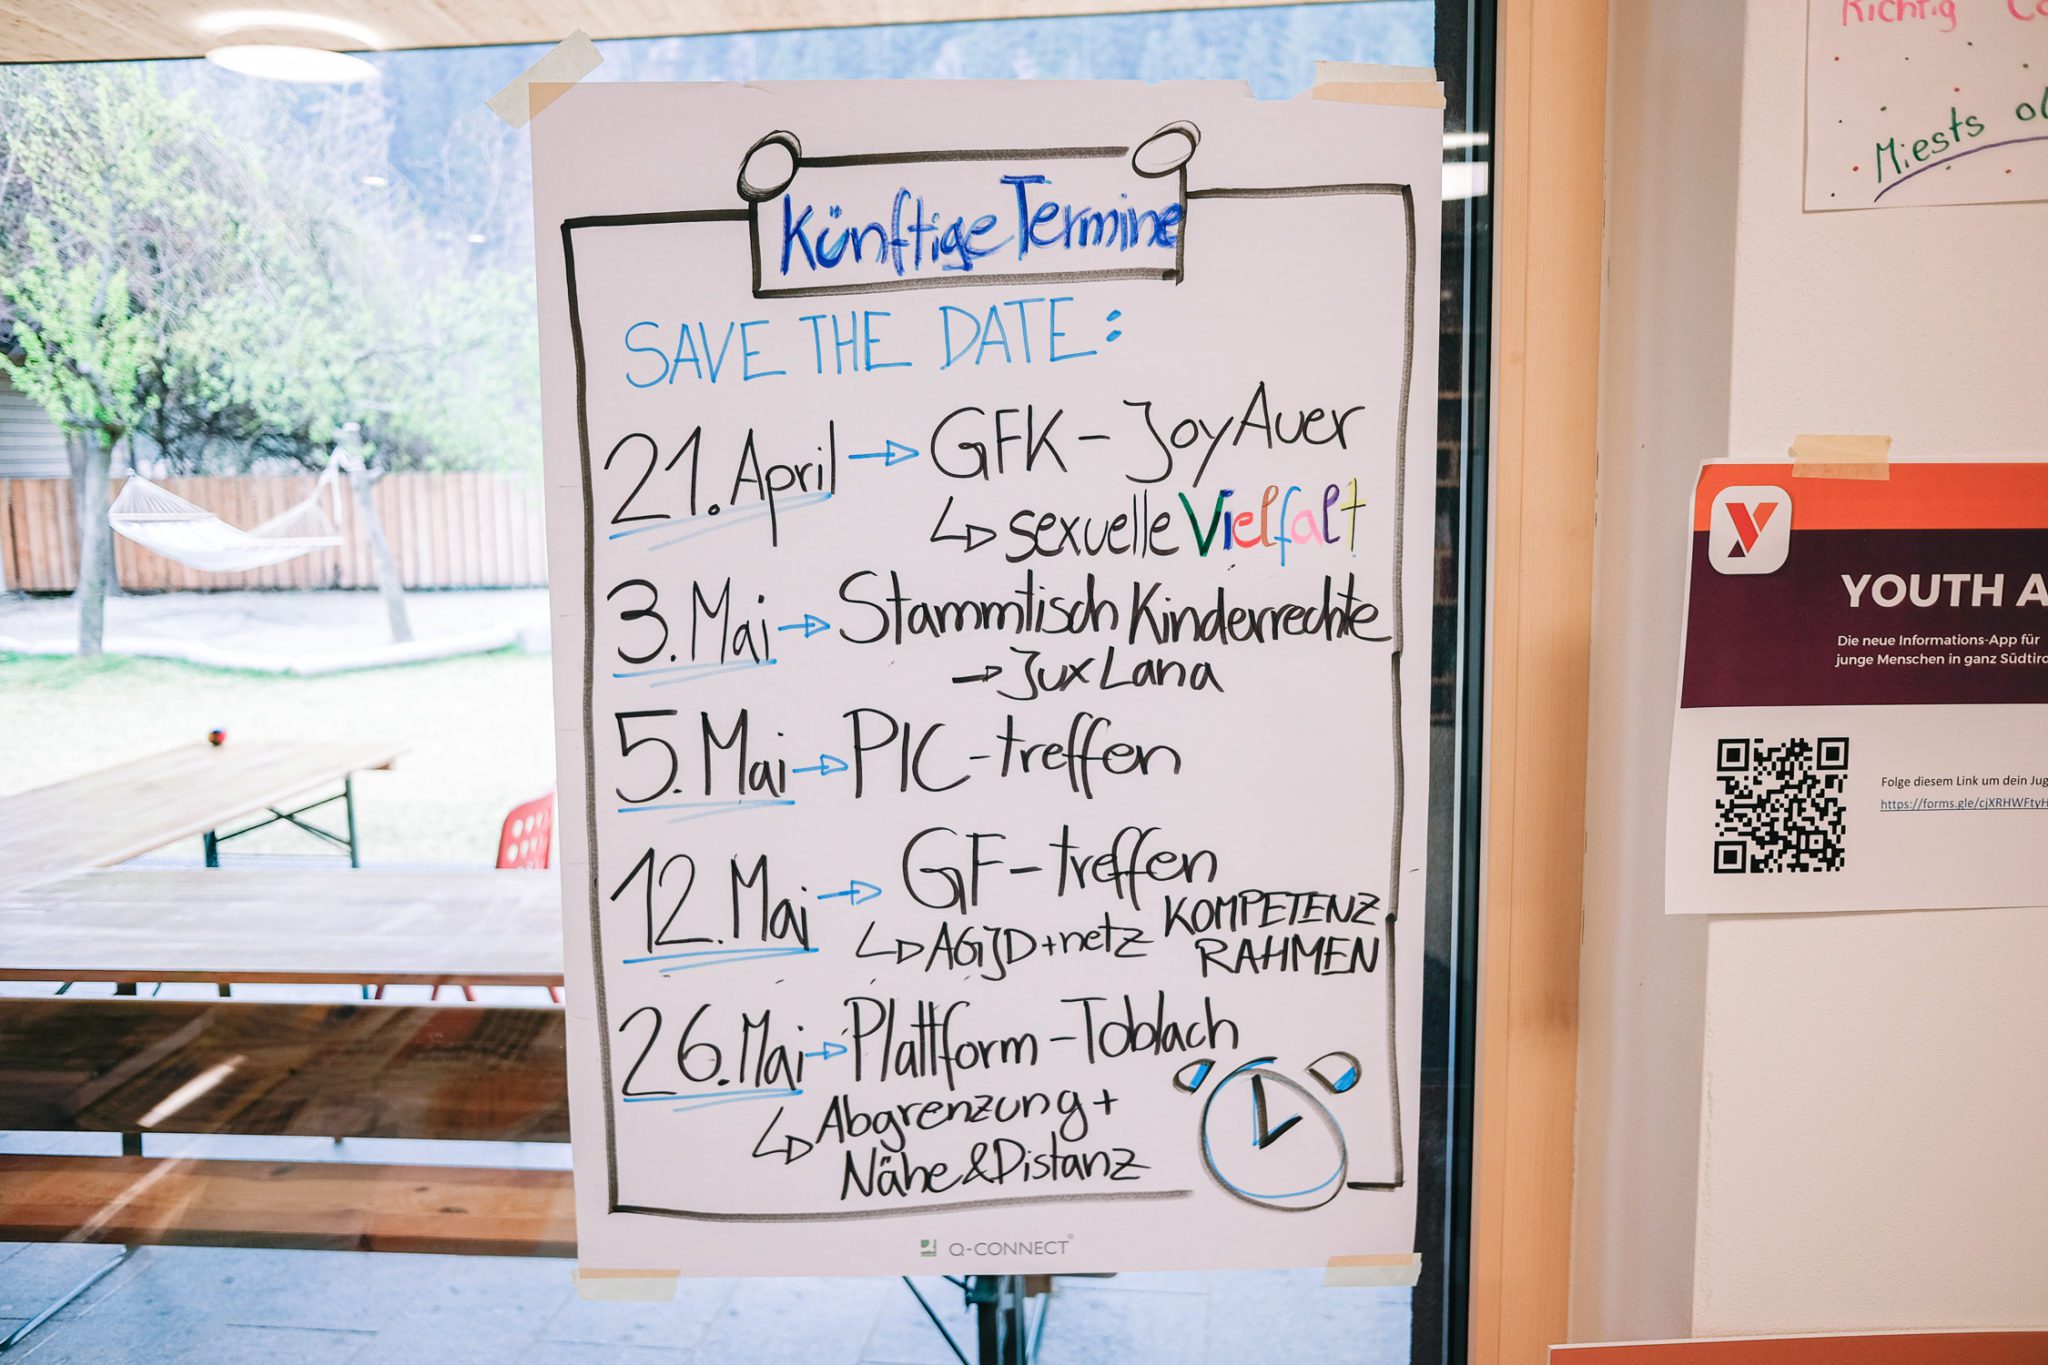 Künftige Termine
SAVE THE DATE:
21. April → GFK - Joy Auer
↳ sexuelle Vielfalt
3. Mai → Stammtisch Kinderrechte
→ Jux Lana
5. Mai → PIC-treffen
12. Mai → GF-treffen
↳ AGJD+netz KOMPETENZ
RAHMEN
26. Mai → Plattform - Toblach
↳ Abgrenzung +
Nähe & Distanz
Q-CONNECT®
Richtig
Miests
YOUTH A
Die neue Informations-App für
junge Menschen in ganz Südtiro
Folge diesem Link um dein Jug
https://forms.gle/cjXRHWFtyH